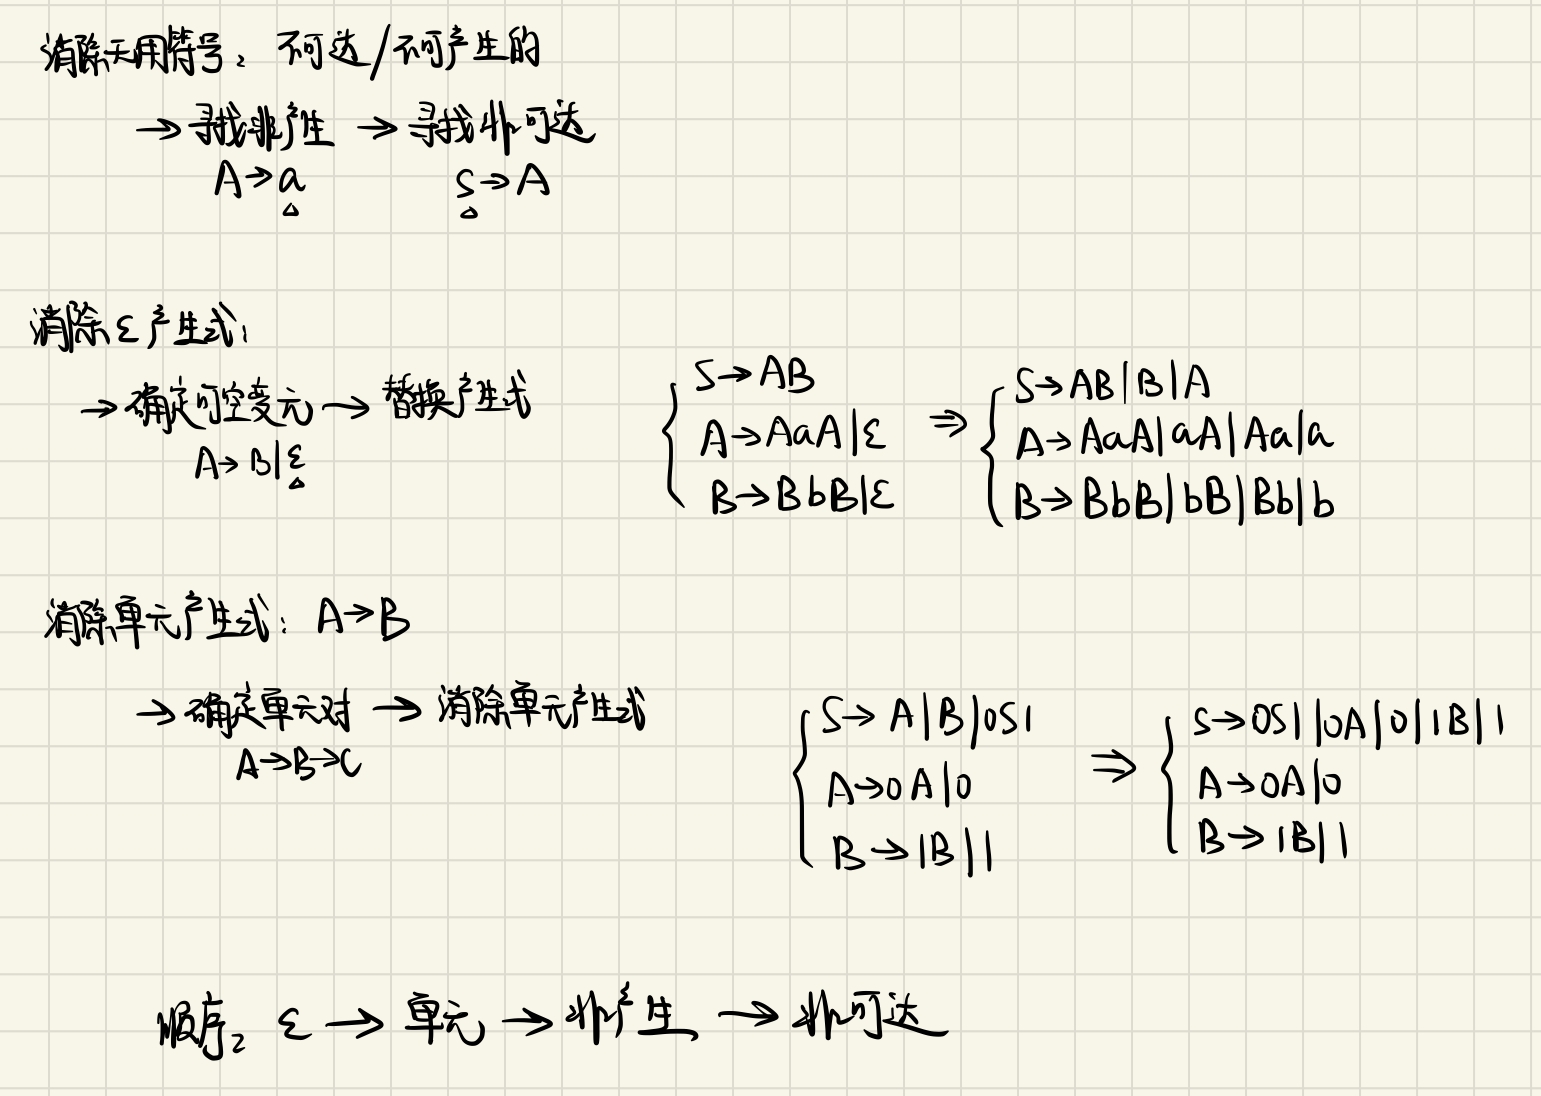 消除无用符号: 不可达/不可产生的
→ 寻找非产生 → 寻找非可达
A→a S→A
消除ε产生式:
→ 确定可空变元 → 替换产生式
A→B|ε
S→AB
A→AaA|ε
B→BbB|ε
⇒
S→AB|B|A
A→AaA|aA|Aa|a
B→BbB|bB|Bb|b
消除单元产生式: A→B
→ 确定单元对 → 消除单元产生式
A→B→C
S→A|B|0S1
A→0A|0
B→1B|1
⇒
S→0S1|0A|0|1B|1
A→0A|0
B→1B|1
顺序: ε → 单元 → 非产生 → 非可达